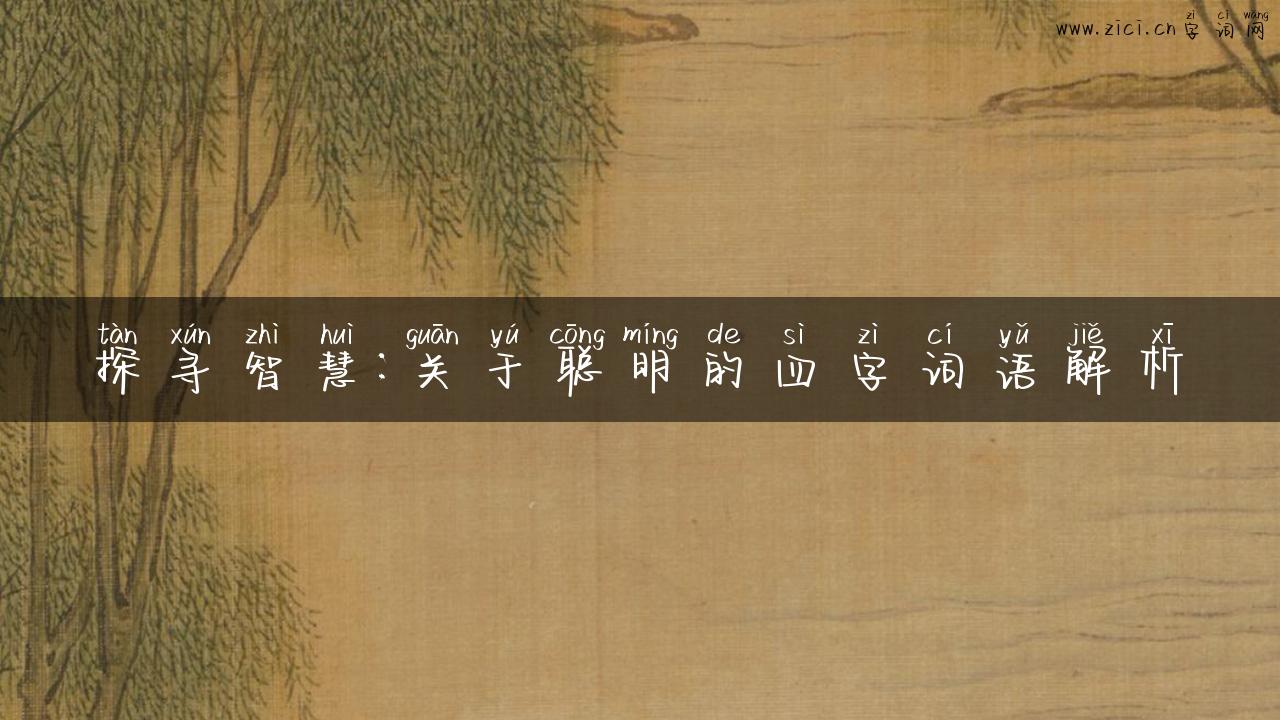 zì cí wǎng
www.zici.cn字词网
tàn xún zhì huì guān yú cōng míng de sì zì cí yǔ jiě xī
探寻智慧:关于聪明的四字词语解析